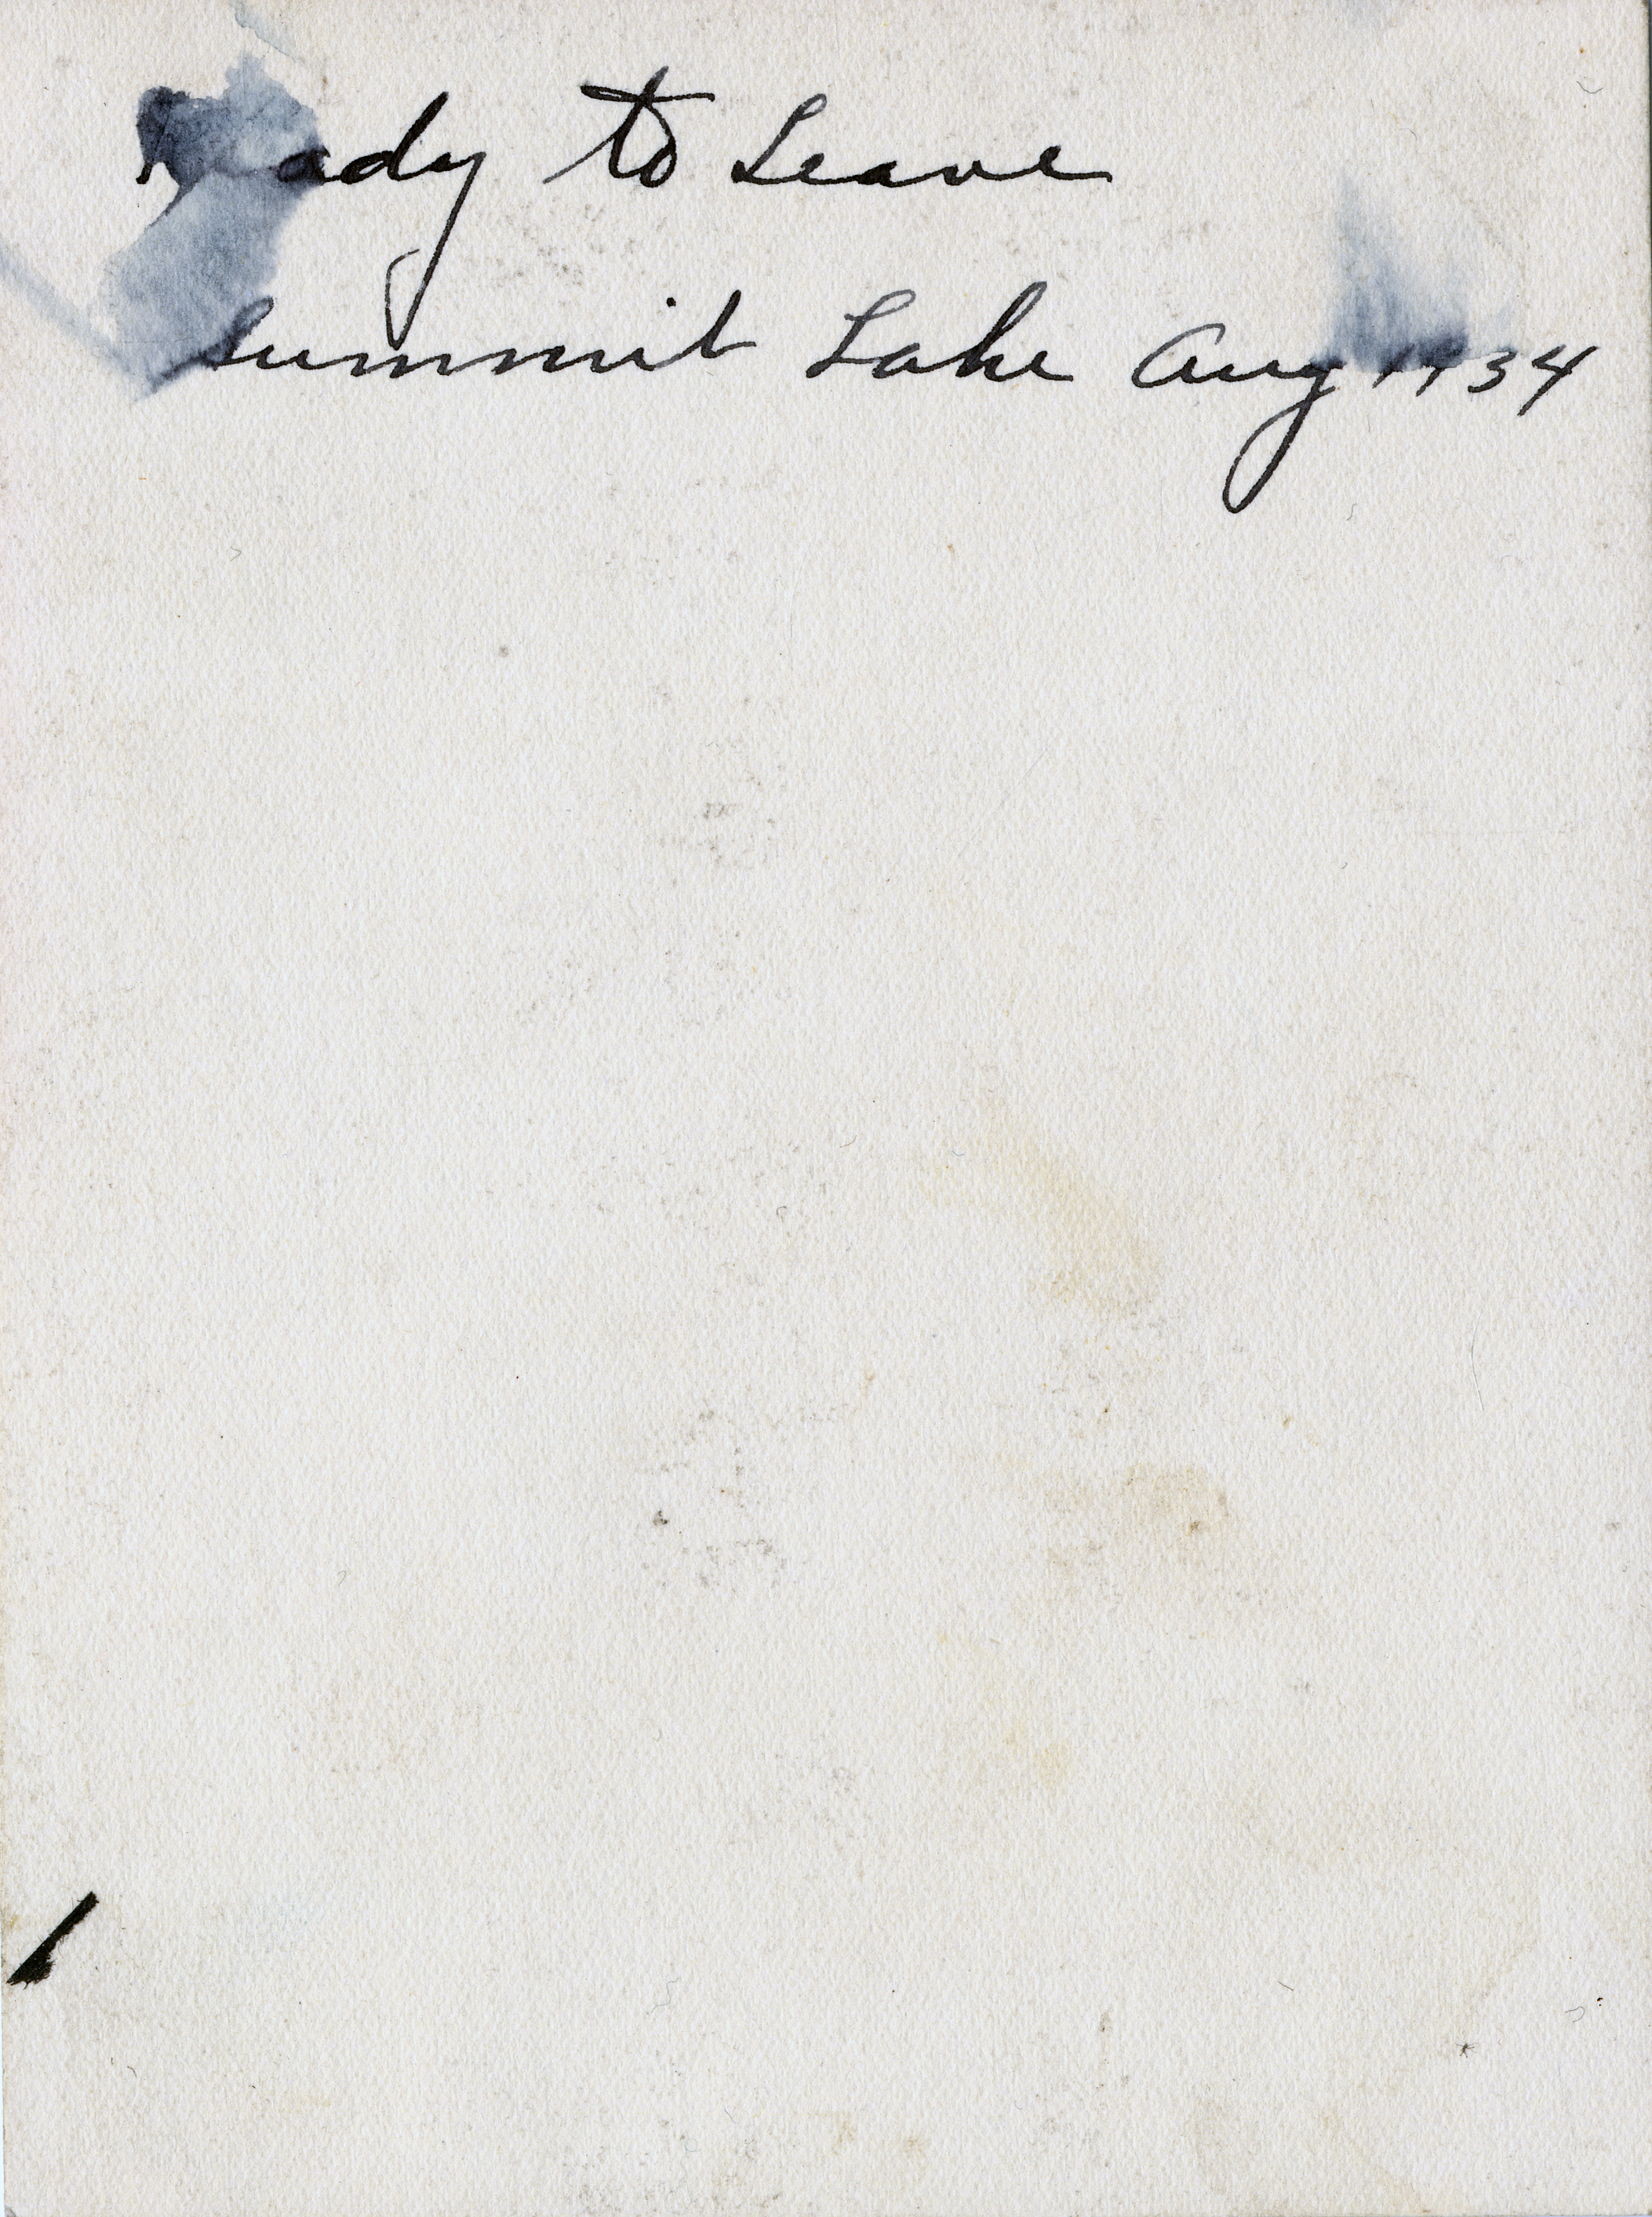 Ready to Leave
Summit Lake Aug 1934